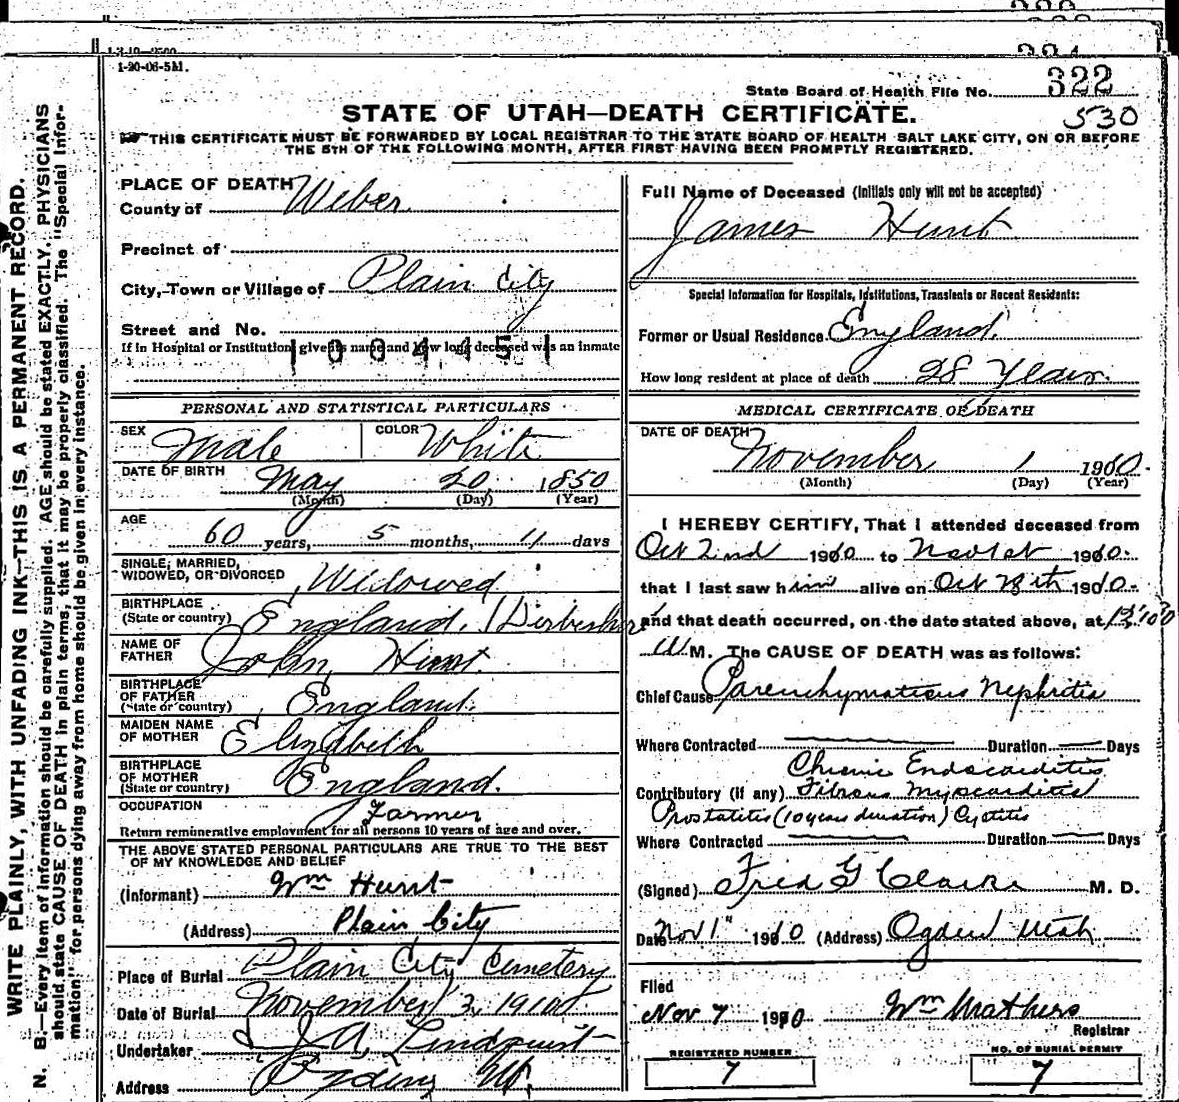 1-20-06-5M.
State Board of Health File No. 322
530
STATE OF UTAH—DEATH CERTIFICATE.
THIS CERTIFICATE MUST BE FORWARDED BY LOCAL REGISTRAR TO THE STATE BOARD OF HEALTH SALT LAKE CITY, ON OR BEFORE
THE 5TH OF THE FOLLOWING MONTH, AFTER FIRST HAVING BEEN PROMPTLY REGISTERED.
WRITE PLAINLY, WITH UNFADING INK—THIS IS A PERMANENT RECORD.
N. B.—Every item of information should be carefully supplied. AGE should be stated EXACTLY. PHYSICIANS
should state CAUSE OF DEATH in plain terms, that it may be properly classified. The "Special Infor-
mation" for persons dying away from home should be given in every instance.
PLACE OF DEATH
County of Weber
Precinct of
City, Town or Village of Plain City
Street and No.
If in Hospital or Institution, give its name and how long deceased was an inmate
1004451
PERSONAL AND STATISTICAL PARTICULARS
SEX Male COLOR White
DATE OF BIRTH May 20 1850
(Month) (Day) (Year)
AGE
60 years, 5 months, 11 days
SINGLE, MARRIED,
WIDOWED, OR DIVORCED Widowed
BIRTHPLACE
(State or country) England.
NAME OF
FATHER John Hunt
BIRTHPLACE
OF FATHER
(State or country) England.
MAIDEN NAME
OF MOTHER Elizabeth
BIRTHPLACE
OF MOTHER
(State or country) England.
OCCUPATION Farmer
Return remunerative employment for all persons 10 years of age and over.
THE ABOVE STATED PERSONAL PARTICULARS ARE TRUE TO THE BEST
OF MY KNOWLEDGE AND BELIEF
(Informant) Wm Hunt
(Address) Plain City
Place of Burial Plain City Cemetery
Date of Burial November 3, 1910
Undertaker J A Lindquist
Address Ogden, Ut.
Full Name of Deceased (Initials only will not be accepted)
James Hunt
Special Information for Hospitals, Institutions, Transients or Recent Residents:
Former or Usual Residence England.
How long resident at place of death 28 Years.
MEDICAL CERTIFICATE OF DEATH
DATE OF DEATH
November 1 1910.
(Month) (Day) (Year)
I HEREBY CERTIFY, That I attended deceased from
Oct 2nd 1910 to Nov 1st 1910.
that I last saw him alive on Oct 28th 1910.
and that death occurred, on the date stated above, at
M. The CAUSE OF DEATH was as follows:
Chief Cause Parenchymatous Nephritis
Where Contracted Duration Days
Chronic Endocarditis
Contributory (if any) Fibrous Myocarditis
Prostatitis (10 years duration) Cystitis
Where Contracted Duration Days
(Signed) Fred G Clarke M. D.
Date Nov 1" 1910 (Address) Ogden Utah
Filed
Nov 7 1910 Wm Mathers
Registrar
REGISTERED NUMBER
7
NO. OF BURIAL PERMIT
7